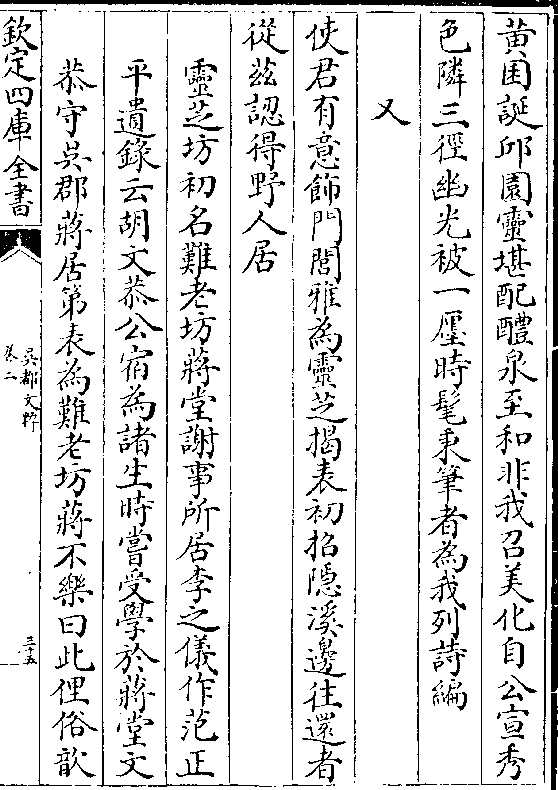 黄囷誕邱園靈堪配醴泉至和非我召美化自公宣秀
色隣三徑幽光被一㕓時髦秉筆者為我列詩編
又
使君有意飾門閭雅為靈芝揭表初招隐溪邊往還者
從兹認得野人居
靈芝坊初名難老坊蔣堂謝事所居李之儀作范正
平遺錄云胡文恭公宿為諸生時嘗受學於蔣堂文
恭守吳郡蔣居第表為難老坊蔣不樂曰此俚俗歆
欽定四庫全書
吳都文粹
卷二
三十五